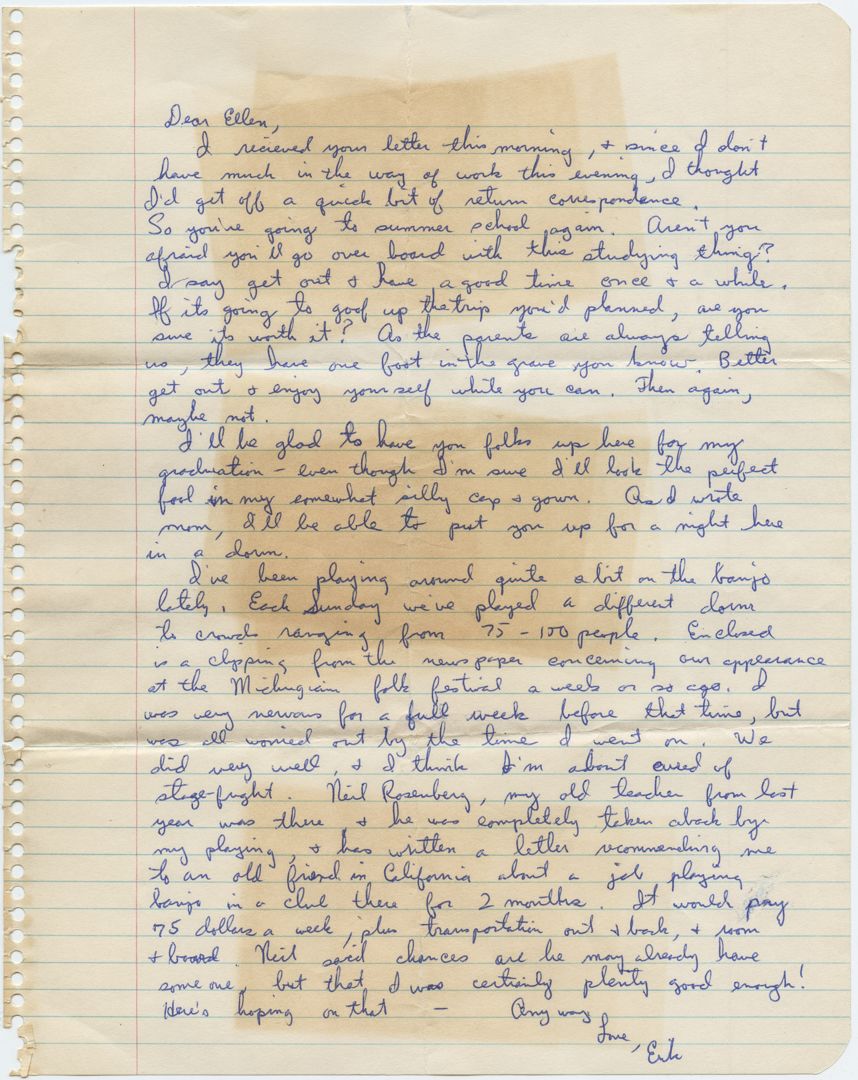 Dear Ellen,
I recieved your letter this morning, & since I don't
have much in the way of work this evening, I thought
I'd get off a quick bit of return correspondence.
So you're going to summer school again. Aren't you
afraid you'll go over board with this studying thing?
I say get out & have a good time once & a while.
If its going to goof up the trip you'd planned, are you
sure its worth it? As the parents are always telling
us, they have one foot in the grave you know. Better
get out & enjoy yourself while you can. Then again,
maybe not.
I'll be glad to have you folks up here for my
graduation - even though I'm sure I'll look the perfect
fool in my somewhat silly cap & gown. As I wrote
mom, I'll be able to put you up for a night here
in a dorm.
I've been playing around quite a bit on the banjo
lately. Each Sunday we've played a different dorm
to crowds ranging from 75-100 people. Enclosed
is a clipping from the newspaper concerning our appearance
at the Michigian folk festival a week or so ago. I
was very nervous for a full week before that time, but
was all worried out by the time I went on. We
did very well, & I think I'm about cured of
stage-fright. Neil Rosenberg, my old teacher from last
year was there, & he was completely taken aback by
my playing, & has written a letter recommending me
to an old friend in California about a job playing
banjo in a club there for 2 months. It would pay
75 dollars a week, plus transportation out & back, & room
& board. Neil said chances are he may already have
some one, but that I was certainly plenty good enough!
Here's hoping on that — Any way
Love,
Erik